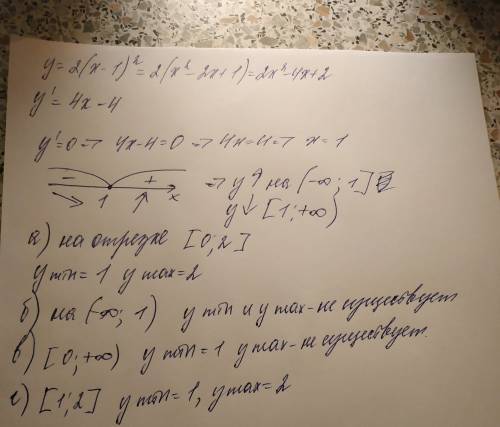 y = 2(x-1)² = 2(x²-2x+1) = 2x²-4x+2
y' = 4x-4
y'=0 => 4x-4=0 => 4x=4 => x=1
- + => y↑ на (-∞; 1]
↘ 1 ↑ x y↓ [1; +∞)
а) на отрезке [0; 2]
y min = 1 y max = 2
б) на (-∞; 1) y min и y max - не существует
в) [0; +∞) y min = 1 y max - не существует.
г) [1; 2] y min = 1, y max = 2